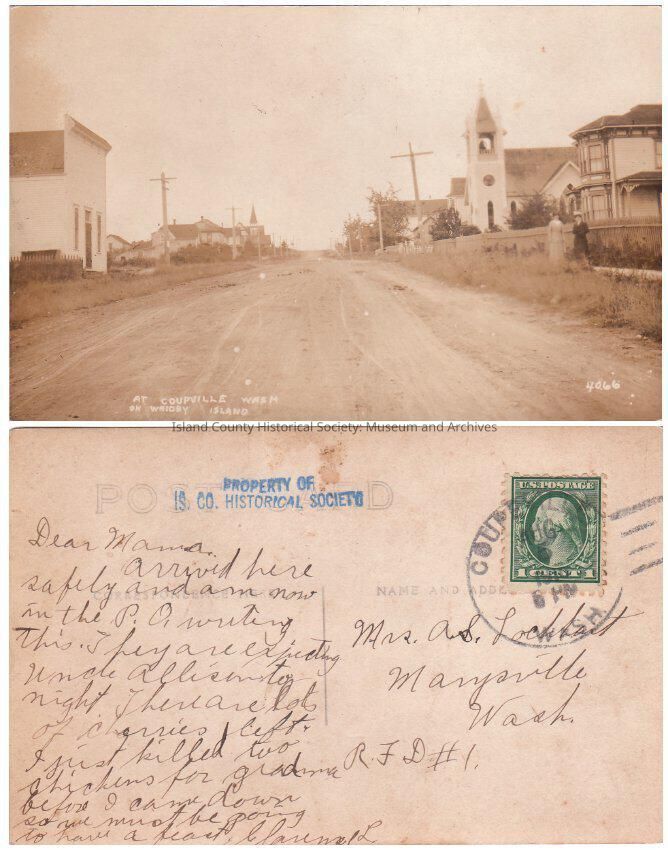 AT COUPVILLE WASH
ON WHIDBY ISLAND
4066
Island County Historical Society: Museum and Archives
POST CARD
PROPERTY OF
IS. CO. HISTORICAL SOCIETY
U.S. POSTAGE
1 CENT 1
COUP
WASH
CORRESPONDENCE
NAME AND ADD
Dear Mama.
Arrived here
safely and am now
in the P.O. writing
this. They are expecting
Uncle Allison to
night There are lots
of cherries left.
I just killed two
chickens for grandma
before I came down
so we must be going
to have a feast. Clarence L.
Mrs. A.S. Lockhart
Marysville
Wash.
R.F.D #1.